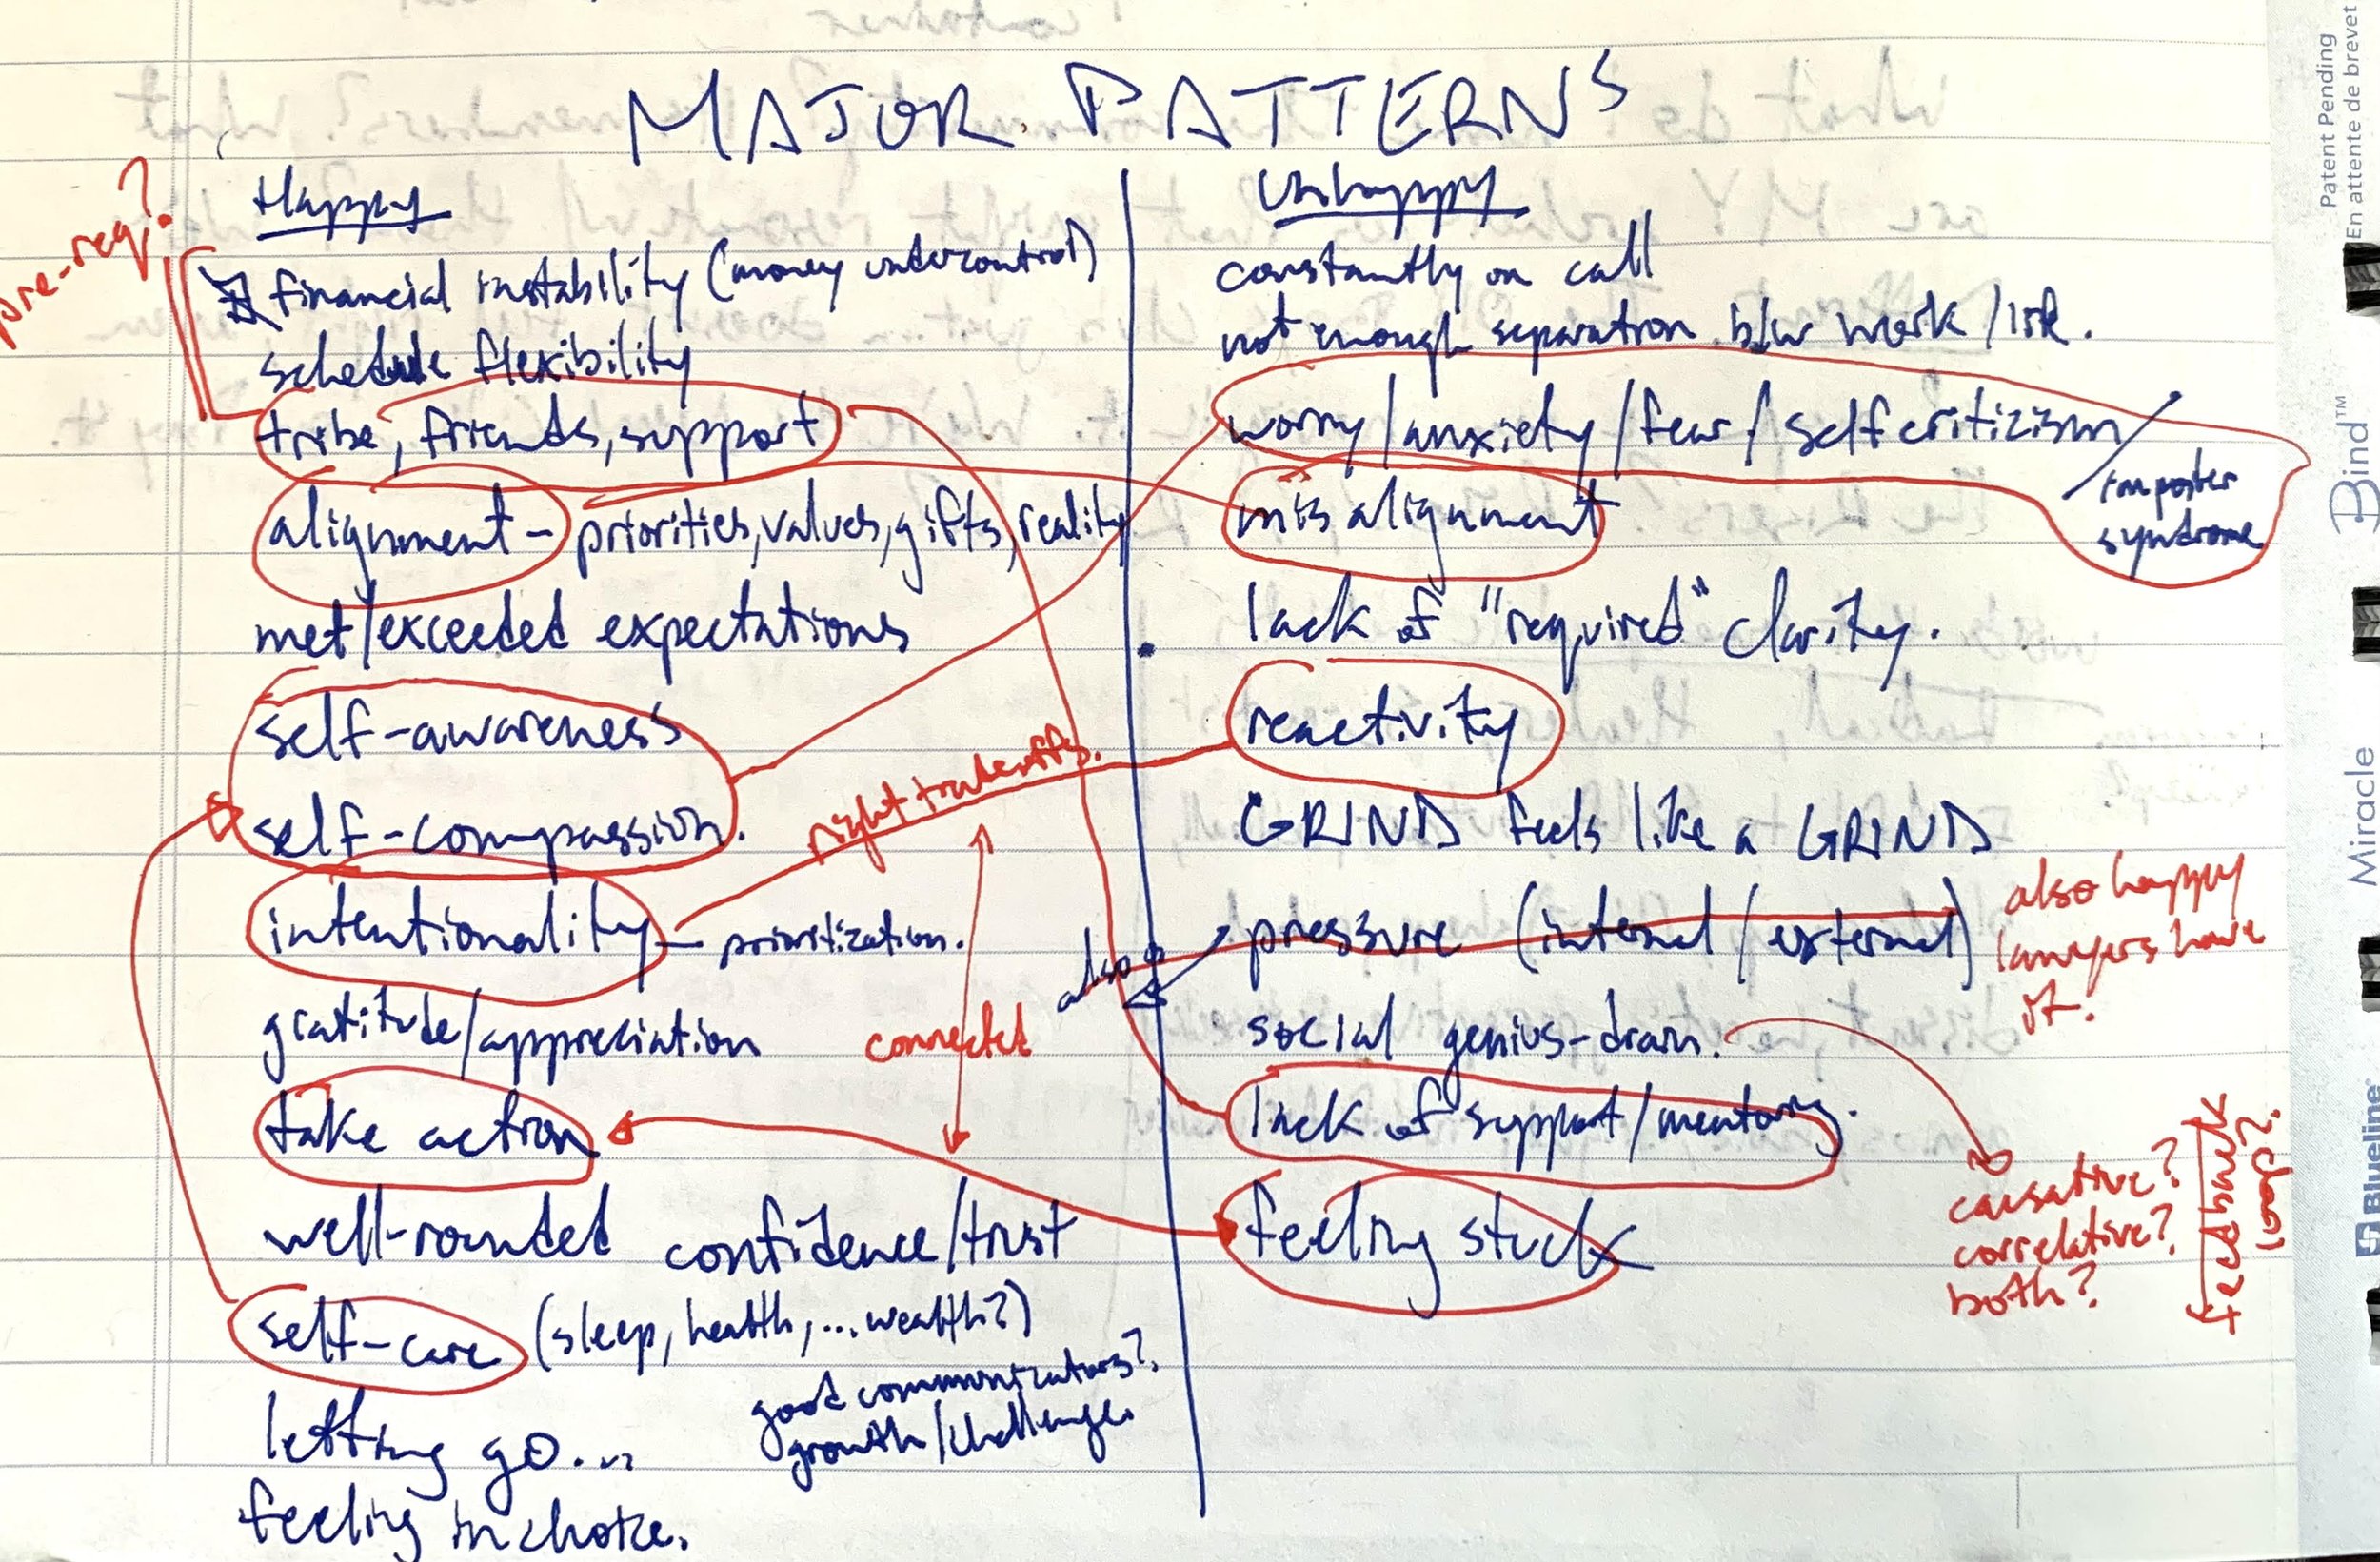 MAJOR PATTERNS
pre-req?
Happy
financial instability (money under control)
schedule flexibility
tribe, friends, support
alignment - priorities, values, gifts, reality
met/exceeded expectations
self-awareness
self-compassion.
intentionality - prioritization.
gratitude/appreciation
take action
well-rounded confidence/trust
self-care (sleep, health, ... wealth?)
good communicators?
growth/challenge.
letting go...
feeling in choice.
right tradeoffs.
connected
also
Unhappy
constantly on call
not enough separation b/w work/life.
worry/anxiety/fear/self criticizism/
imposter
syndrome
misalignment
lack of "required" clarity.
reactivity
GRIND feels like a GRIND
pressure (internal/external)
also happy
lawyers have
it.
social genius-drain.
lack of support/mentors.
feeling stuck
causative?
correlative?
both?
feedback
loop?
Patent Pending
En attente de brevet
Blueline Miracle Bind™